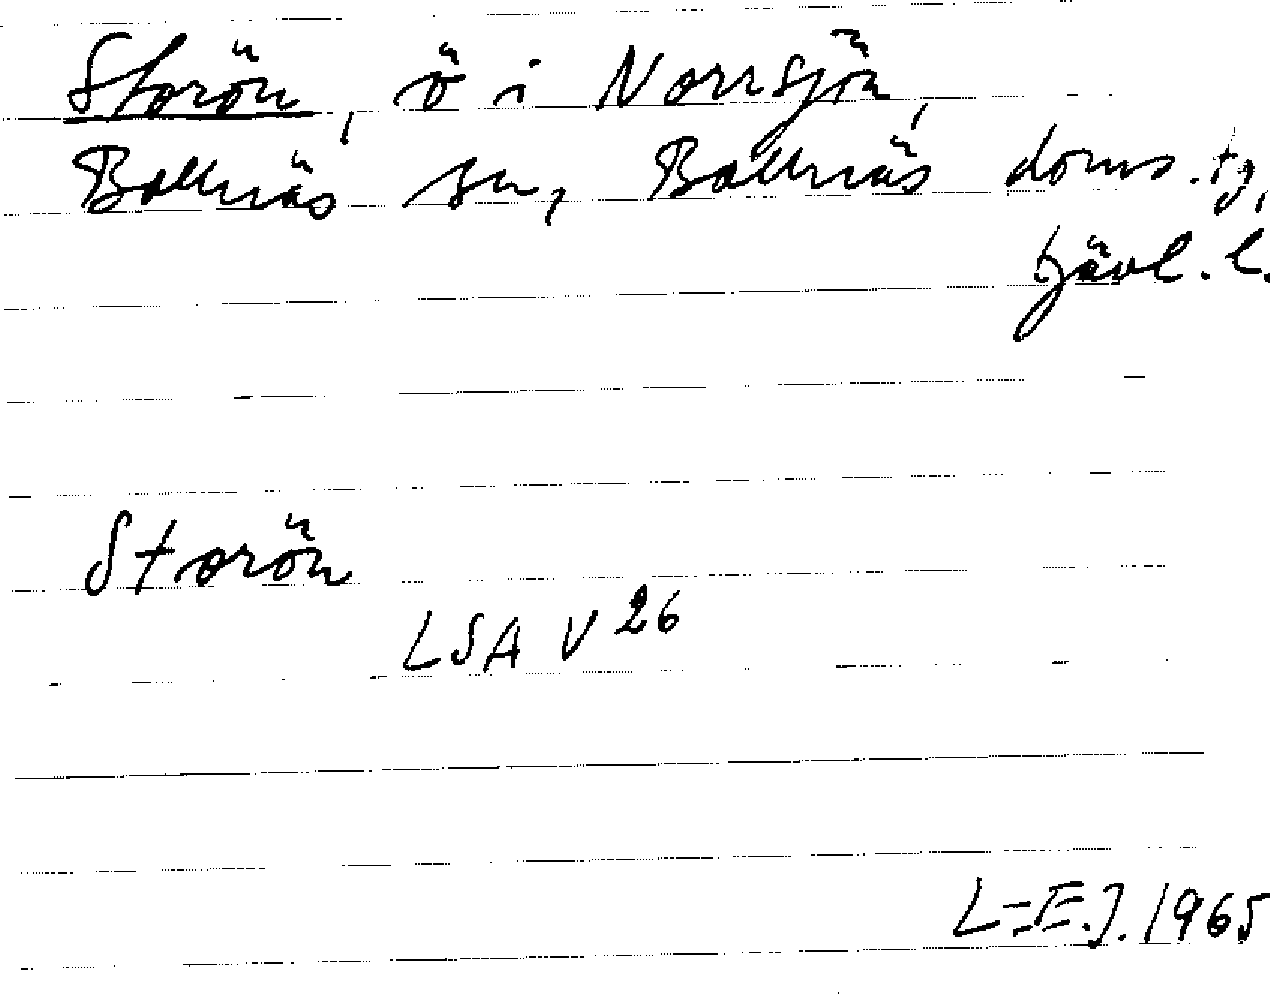 Storön, ö i Norrsjön,
Bollnäs sn, Bollnäs doms.tg,
Gävl.l.
Storön
LSA V 26
L-E.J. 1965